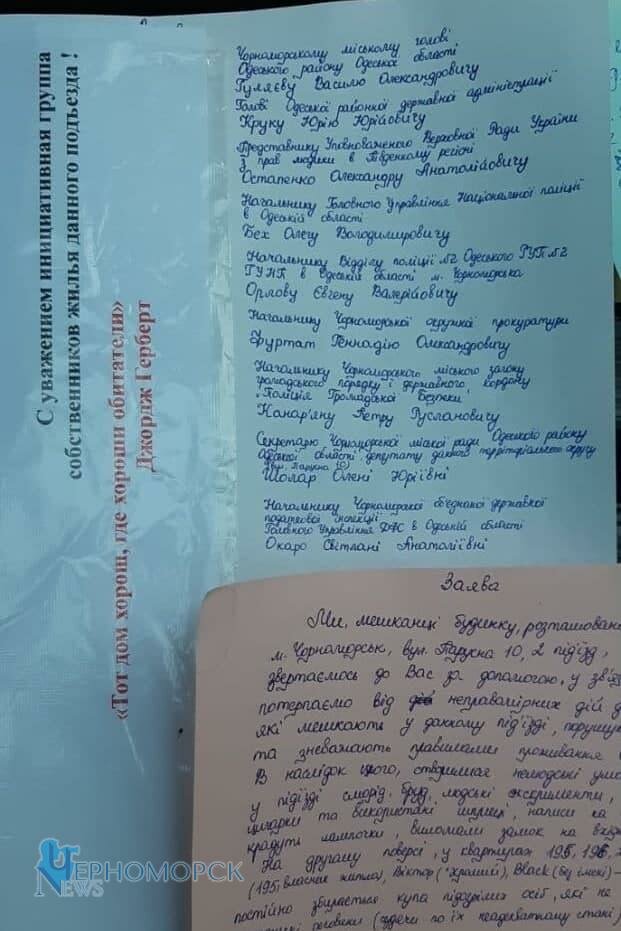 С уважением инициативная группа
собственников жилья данного подъезда !
«Тот дом хорош, где хороши обитатели»
Джордж Герберт
Чорноморському міському голові
Одеського району Одеської області
Гуляєву Василю Олександровичу
Голові Одеської районної державної адміністрації
Круку Юрію Юрійовичу
Представнику Уповноваженого Верховної Ради України
з прав людини в Південному регіоні
Остапенко Олександру Анатолійовичу
Начальнику Головного Управління Національної поліції
в Одеській області
Бех Олегу Володимировичу
Начальнику Відділу поліції №2 Одеського РУП №2
ГУНП в Одеській області м. Чорноморська
Орлову Євгену Валерійовичу
Начальнику Чорноморської окружної прокуратури
Фуртат Геннадію Олександровичу
Начальнику Чорноморського міського загону
громадського порядку і державного кордону
"Поліція Громадської Безпеки"
Канар'яну Петру Руслановичу
Секретарю Чорноморської міської ради Одеського району
Одеської області депутату даного територіального округу
(вул. Парусна 10)
Шолар Олені Юріївні
Начальнику Чорноморської об'єднаної державної
податкової інспекції
Головного Управління ДФС в Одеській області
Окаро Світлані Анатоліївні
Заява
Ми, мешканці будинку, розташован
м. Чорноморськ, вул. Парусна 10, 2 під'їзд,
звертаємось до Вас за допомогою, у зв'яз
потерпаємо від неправомірних дій
які мешкають у данному під'їзді, порушу
та зневажають правилами проживання
В наслідок цього, створилися нелюдські умо
у під'їзді сморід, бруд, людські экскременти,
цигарки та використані шприці, написи на
крадуть лампочки, виломали замок на вхід
На другому поверсі, у квартирах 195, 196,
(195 власник житла, Віктор ("Храмий), Black (без імені) –
постійно збирається купа підозрілих осіб, які не
речовини (судячи по їх неадекватному стані)
ЧЕРНОМОРСК
NEWS